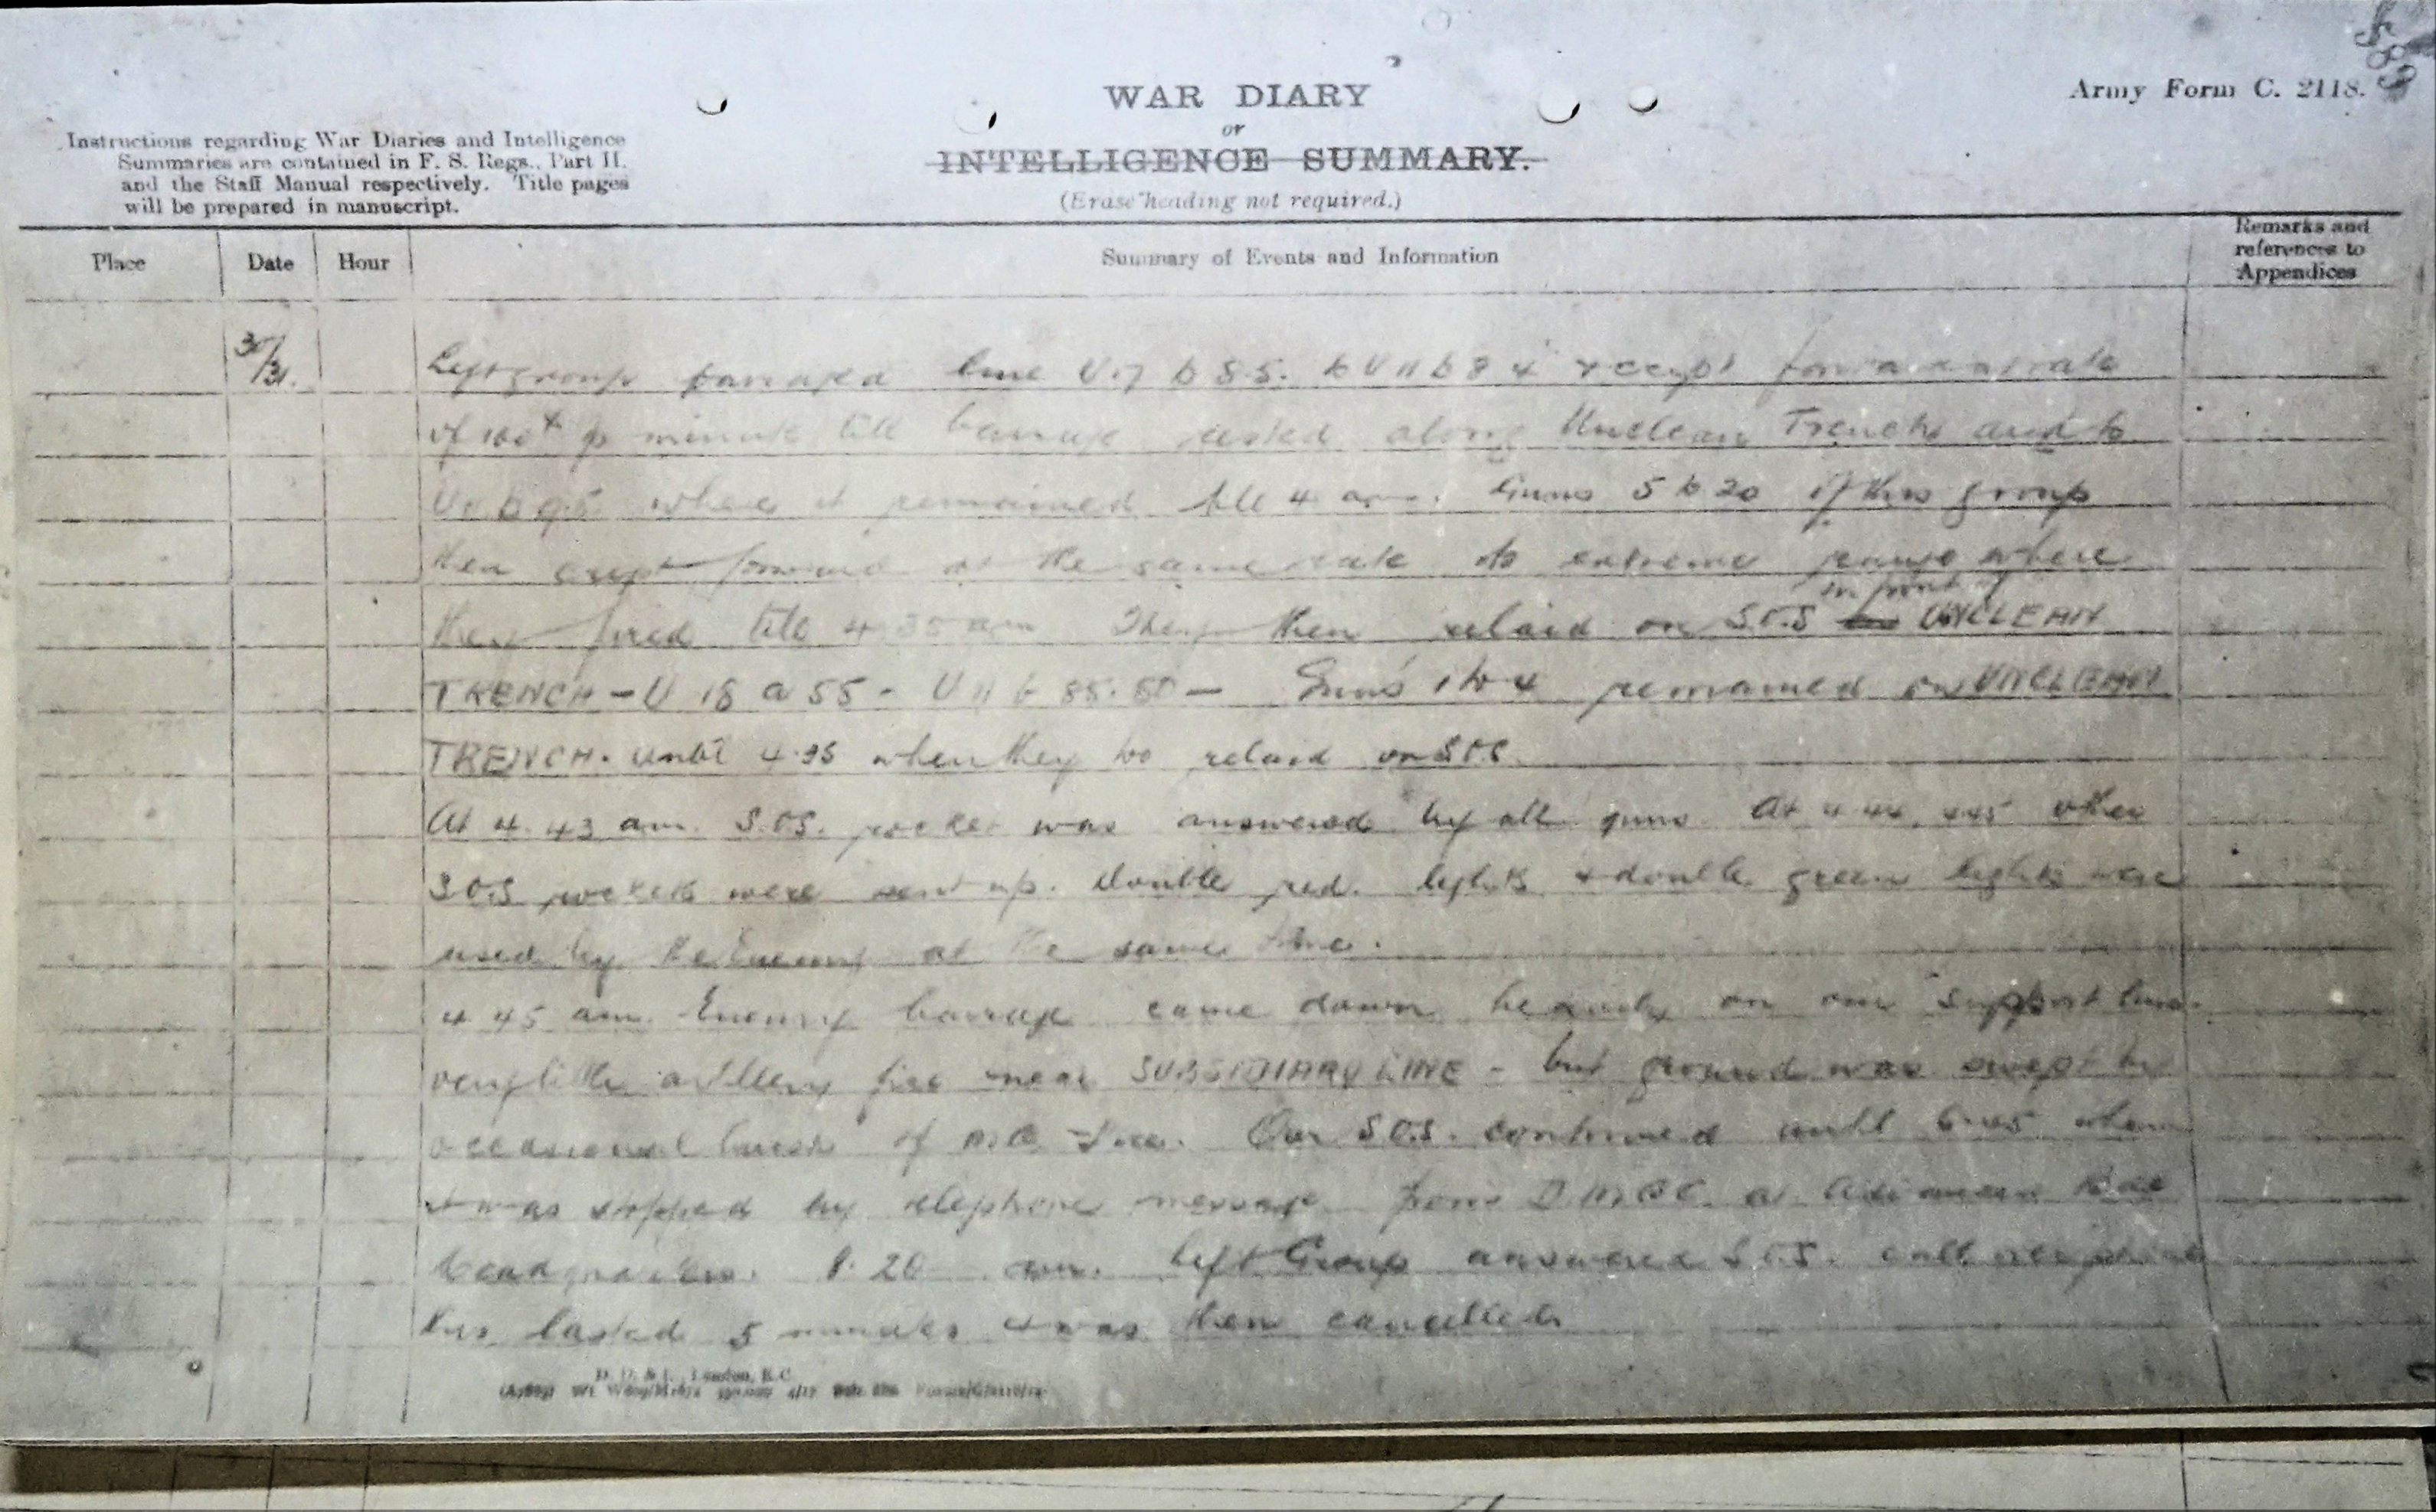 Army Form C. 2118.
WAR DIARY
or
INTELLIGENCE SUMMARY.
(Erase heading not required.)
Instructions regarding War Diaries and Intelligence
Summaries are contained in F. S. Regs., Part II.
and the Staff Manual respectively. Title pages
will be prepared in manuscript.
Place Date Hour Summary of Events and Information Remarks and
references to
Appendices
30/31. Left group barraged line U.17 b 8.5. to U 11 b 8 4 & crept forward at rate
of 100x p minute till barrage rested along Unclean Trench and to
U 11. b 9.5 where it remained till 4 am. Guns 5 to 20 of this group
then crept forward at the same rate to extreme range where
they fired till 4.35 am They then relaid on S.O.S in front of UNCLEAN
TRENCH - U 18 a 55 - U 11 b 85.80 - Guns 1 to 4 remained on UNCLEAN
TRENCH. until 4.35 when they too relaid on S.O.S.
At 4.43 am. S.O.S. rocket was answered by all guns. At 4 44, 4.45 other
S.O.S rockets were sent up. Double red lights & double green lights were
used by the Enemy at the same time.
4.45 am. Enemy barrage came down heavily on our support line.
very little artillery fire near SUBSIDIARY LINE - but ground was swept by
occasional bursts of M.G. fire. Our S.O.S. continued until when
it was stopped by telephone message from D.M.G.C. at Advanced Bde
headquarters. 8.20 am. Left Group answered S.O.S. call
this lasted 5 minutes & was then cancelled.
D. D. & L., London, E.C.